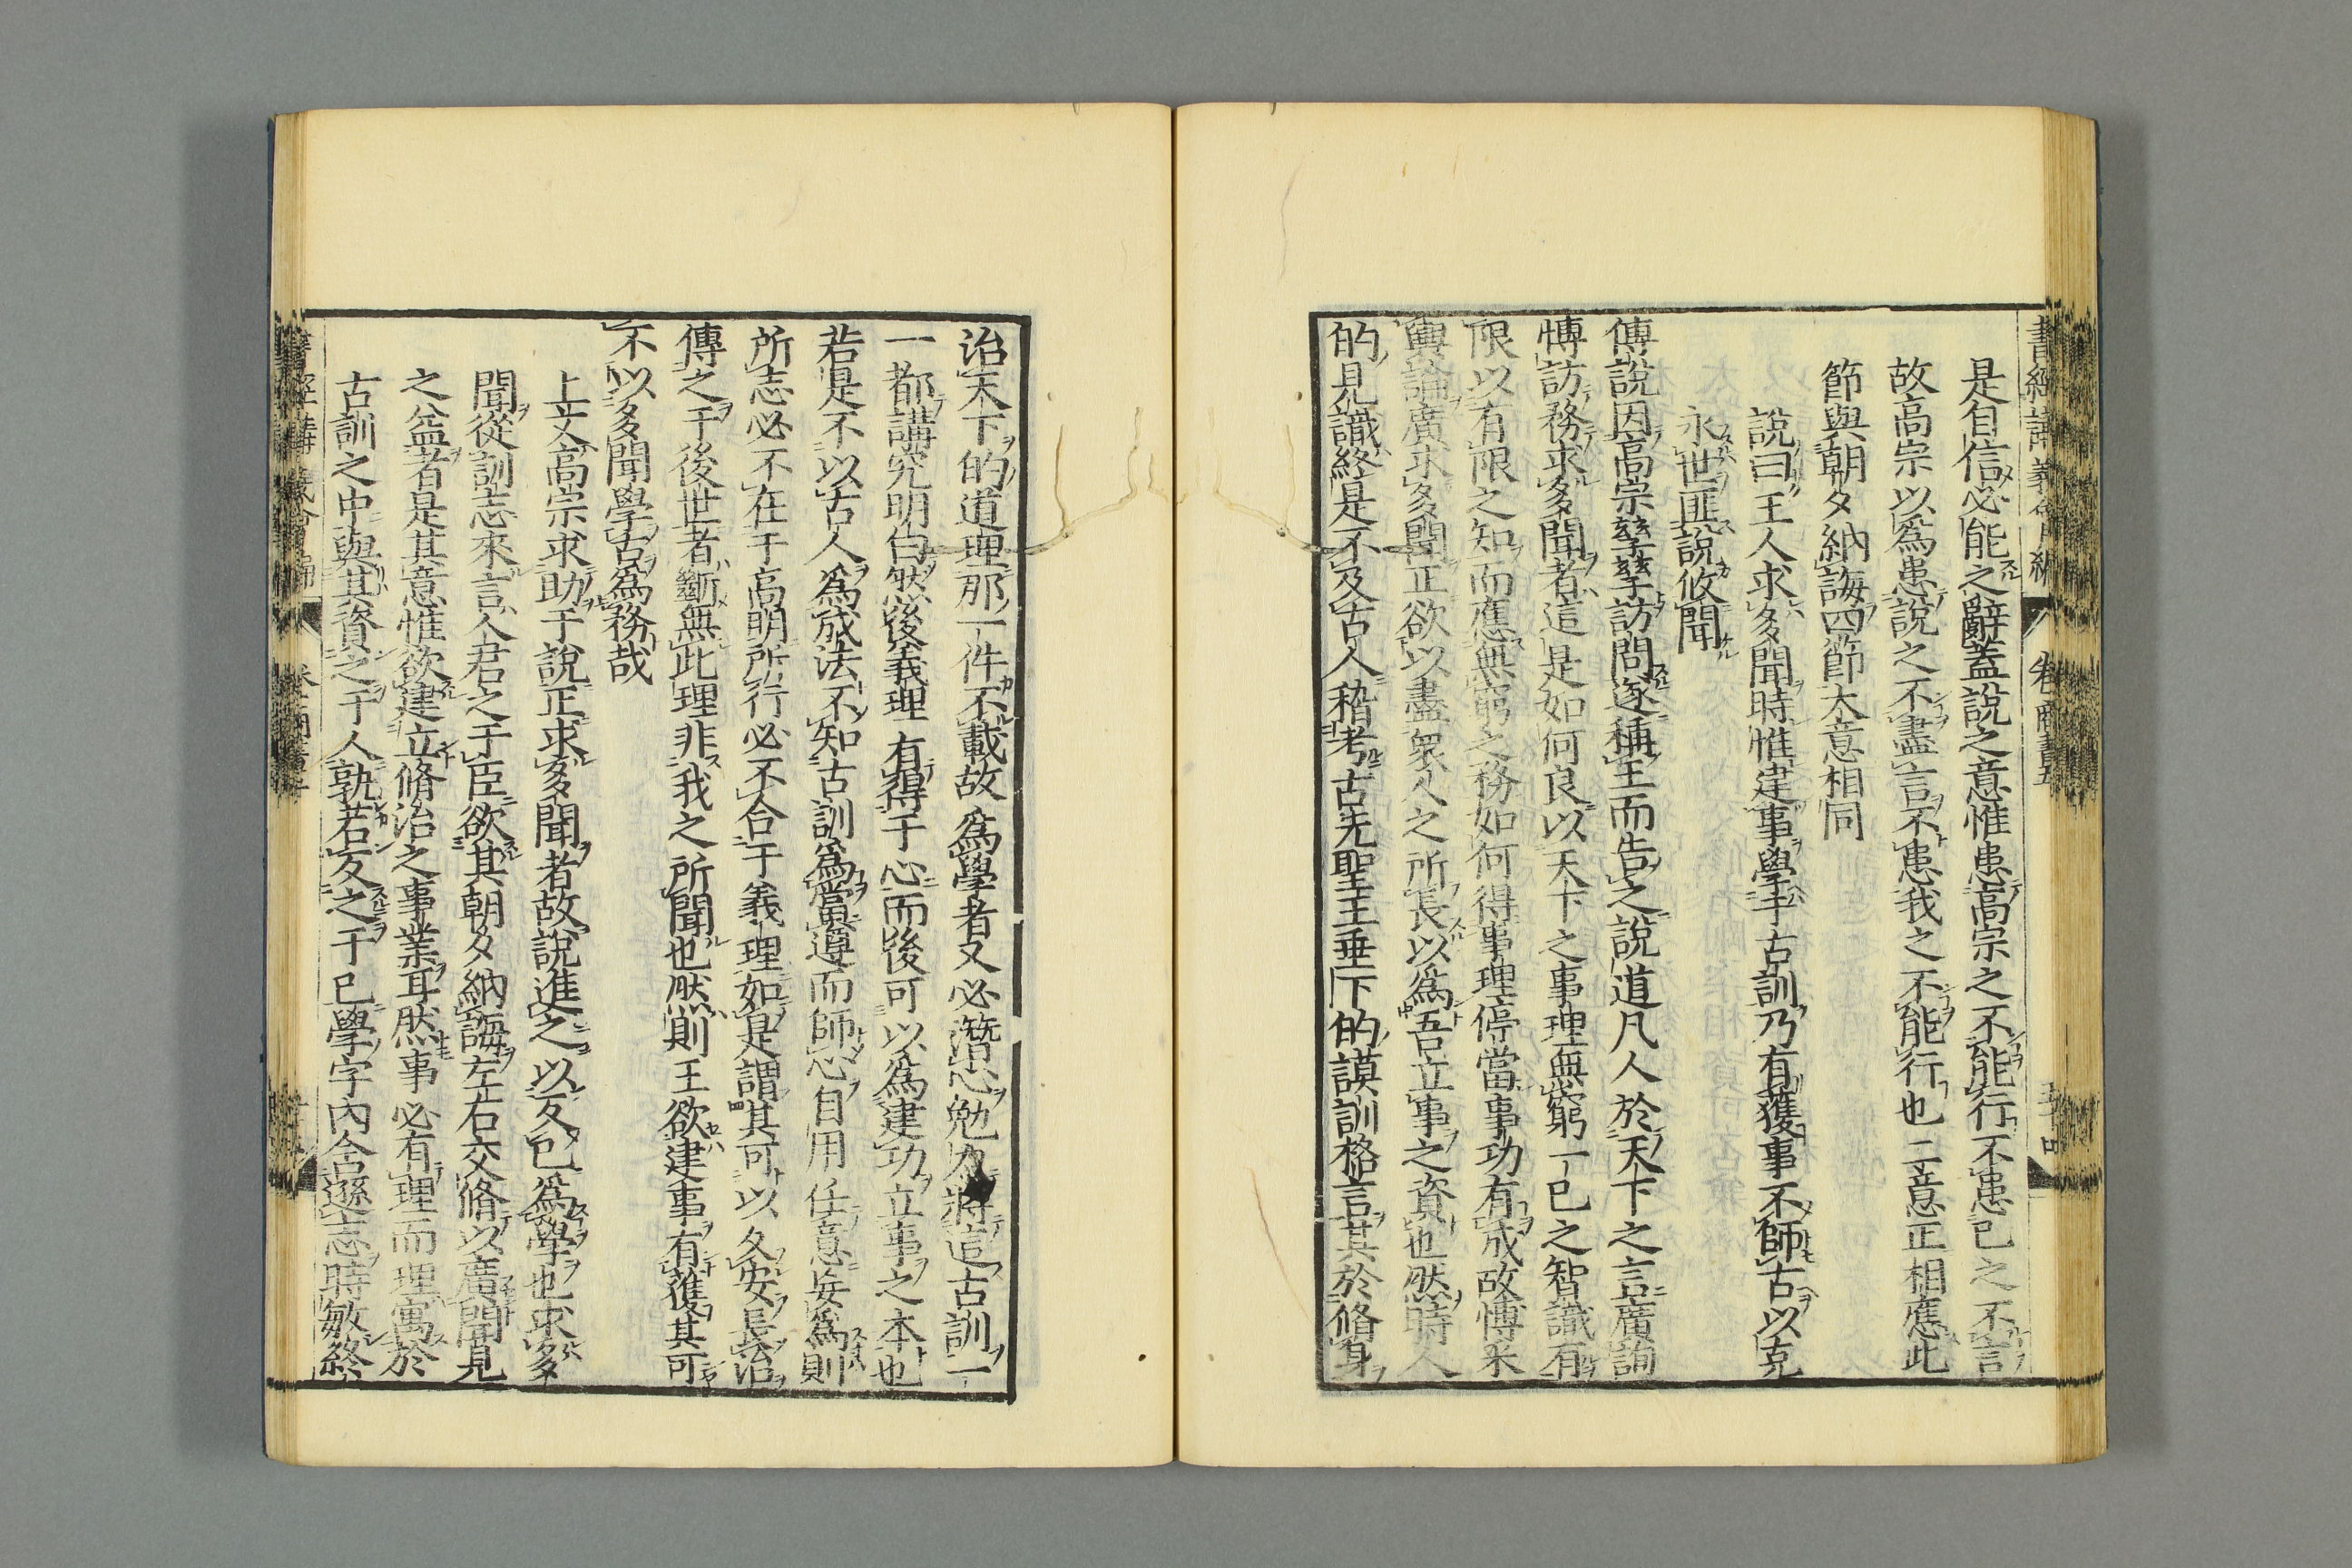 書經講義會編 卷 商書五
是自信必能之辭蓋說之意惟患高宗之不能行不患己之不言
故高宗以爲患說之不盡言不患我之不能行也二意正相應此
節與朝夕納誨四節大意相同
說曰王人求多聞時惟建事學于古訓乃有獲事不師古以克
永世匪說攸聞
傅說因高宗孳孳訪問遂稱王而告之說道凡人於天下之言廣詢
博訪務求多聞者這是如何良以天下之事理無窮一己之智識有
限以有限之知而應無窮之務如何得事理停當事功有成故博采
輿論廣求多聞正欲以盡衆人之所長以爲吾立事之資也然時人
的見識終是不及古人稽考古先聖王垂下的謨訓格言其於脩身
治天下的道理那一件不載故爲學者又必潛心勉力將這古訓一
一都講究明白然後義理有得于心而後可以爲建功立事之本也
若是不以古人爲成法不知古訓爲當遵而師心自用任意妄爲則
所志必不在于高明所行必不合于義理如是謂其可以久安長治
傳之于後世者斷無此理非我之所聞也然則王欲建事有獲其可
不以多聞學古爲務哉
上文高宗求助于說正求多聞者故說進之以反己爲學也求多
聞從訓志來言人君之于臣欲其朝夕納誨左右交脩以廣聞見
之益者是其意惟欲建立脩治之事業耳然事必有理而理寓於
古訓之中與其資之于人孰若反之于己學字內含遜志時敏終
書經講義會編